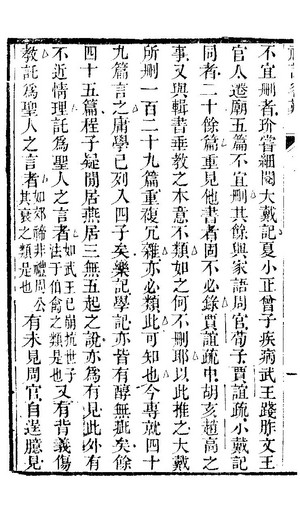 不宜刪者珍嘗細閱大戴記夏小正曾子疾病武王踐阼文王
官人遷廟五篇不宜刪其餘與家語周官荀子賈誼疏小戴記
同者二十餘篇重見他書者固不必錄賈誼疏中胡亥趙高之
事又與輯書垂教之本意不類如之何不刪耶以此推之大戴
所刪一百二十九篇重複冗雜亦必類此可知也今專就四十
九篇言之庸學已列入四子矣樂記學記亦皆有醇無疵矣餘
四十五篇程子疑閒居燕居三無五起之說亦為有見此外有
不近情理託為聖人之言者如武王已崩抗世子法于伯禽之類是也又有背義傷
教託為聖人之言者如郊禘非禮周公其衰之類是也有未見周官自逞臆見